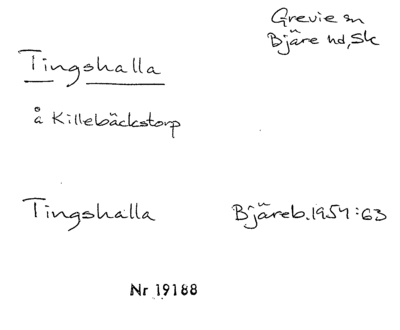 Grevie sn
Bjäre hd, Sk
Tingshalla
å Killebäckstorp
Tingshalla
Bjäreb. 1954:63
Nr 19188